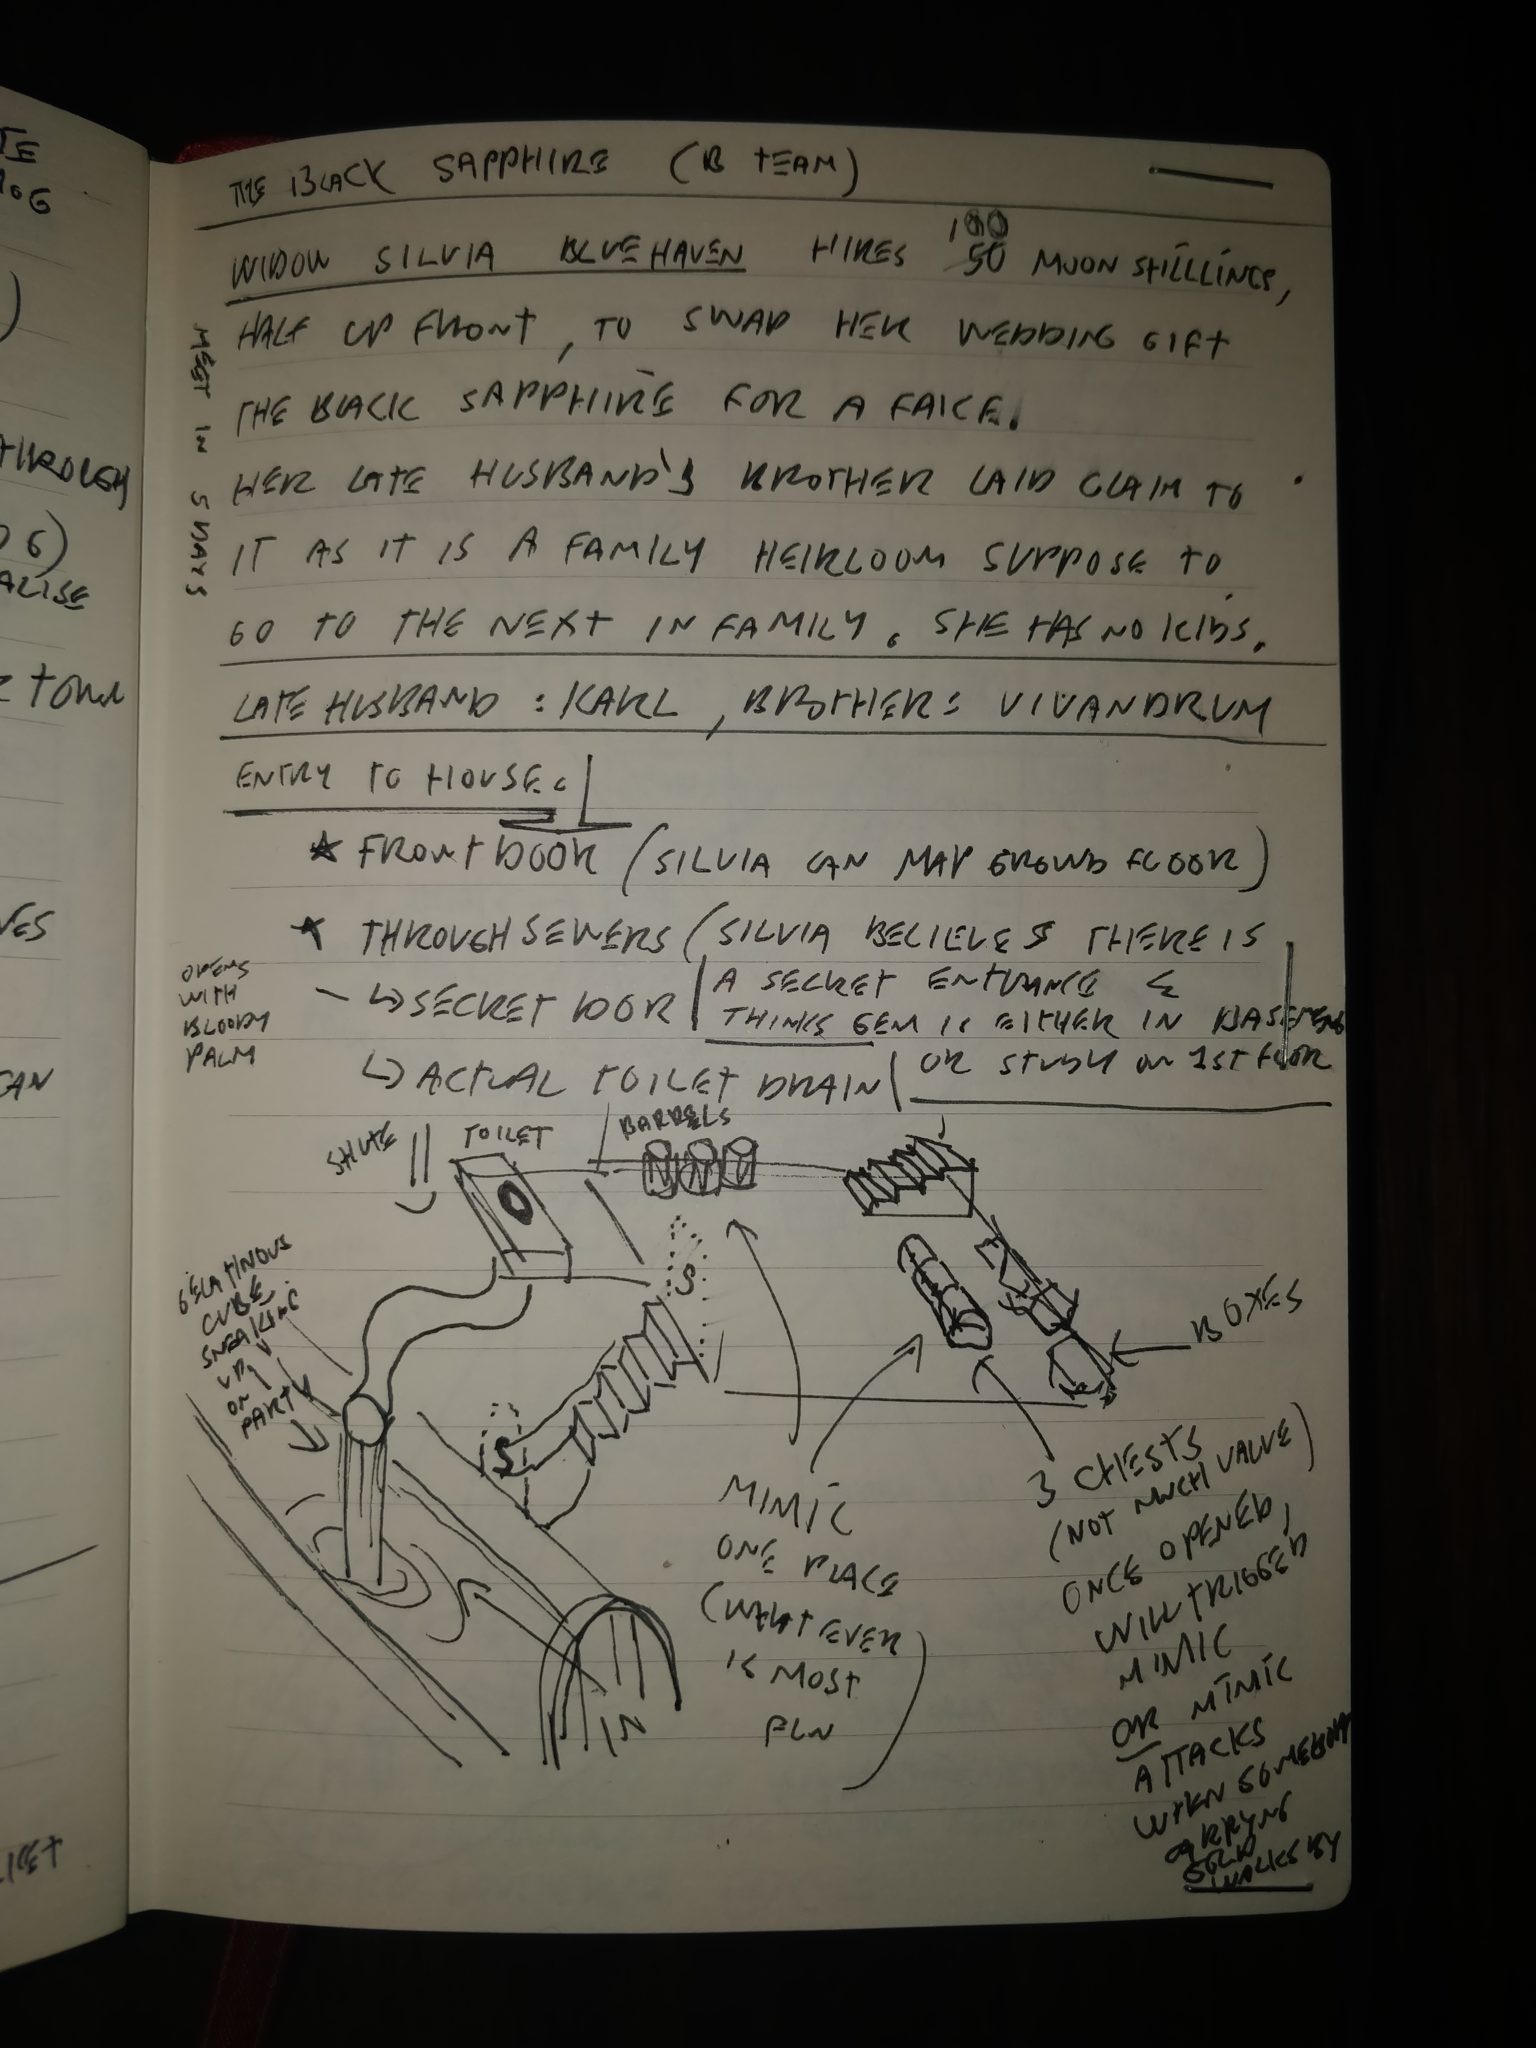 THE BLACK SAPPHIRE (B TEAM)
WIDOW SILVIA BLUEHAVEN HIRES 100 50 MOON SHILLLINGS,
HALF UP FRONT, TO SWAP HER WEDDING GIFT
THE BLACK SAPPHIRE FOR A FAKE.
HER LATE HUSBAND'S BROTHER LAID CLAIM TO
IT AS IT IS A FAMILY HEIRLOOM SUPPOSE TO
GO TO THE NEXT IN FAMILY. SHE HAS NO KIDS.
MEET IN 5 DAYS
LATE HUSBAND : KARL, BROTHER: VIVANDRUM
ENTRY TO HOUSE:
* FRONT DOOR (SILVIA CAN MAP GROUND FLOOR)
* THROUGH SEWERS (SILVIA BELIEVES THERE IS
A SECRET ENTRANCE &
THINKS GEM IS EITHER IN BASEMENT
OR STUDY ON 1ST FLOOR
↳ SECRET DOOR
OPENS
WITH
BLOODY
PALM
↳ ACTUAL TOILET DRAIN
SHUTE
TOILET
BARRELS
GELATINOUS
CUBE
SNEAKING
UP
ON
PARTY
S
S
BOXES
IN
MIMIC
ONE PLACE
(WHATEVER
IS MOST
FUN
3 CHESTS
(NOT MUCH VALUE)
ONCE OPENED,
WILL TRIGGER
MIMIC
OR MIMIC
ATTACKS
WHEN SOMEBODY
CARRYING
GOLD
WALKS BY
TE
OG
THROUGH
D6)
ALISE
TOWN
VES
CAN